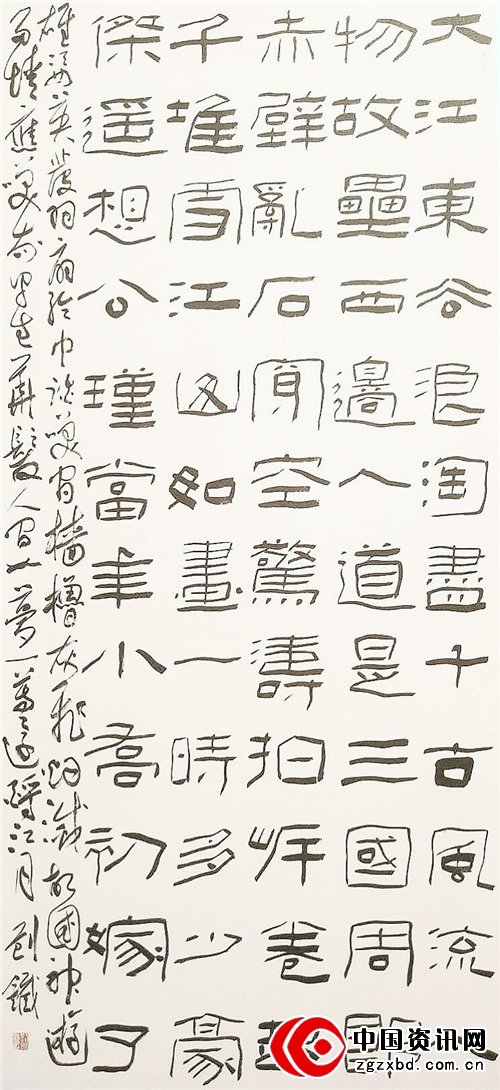 大江東去浪淘盡千古風流人
物故壘西邊人道是三國周郎
赤壁亂石穿空驚濤拍岸卷起
千堆雪江山如畫一時多少豪
傑遙想公瑾當年小喬初嫁了
雄姿英發羽扇綸巾談笑間檣櫓灰飛煙滅故國神遊
多情應笑我早生華髮人間如夢一尊還酹江月 劉鐵
中国资讯网
zgzxbd.com.cn